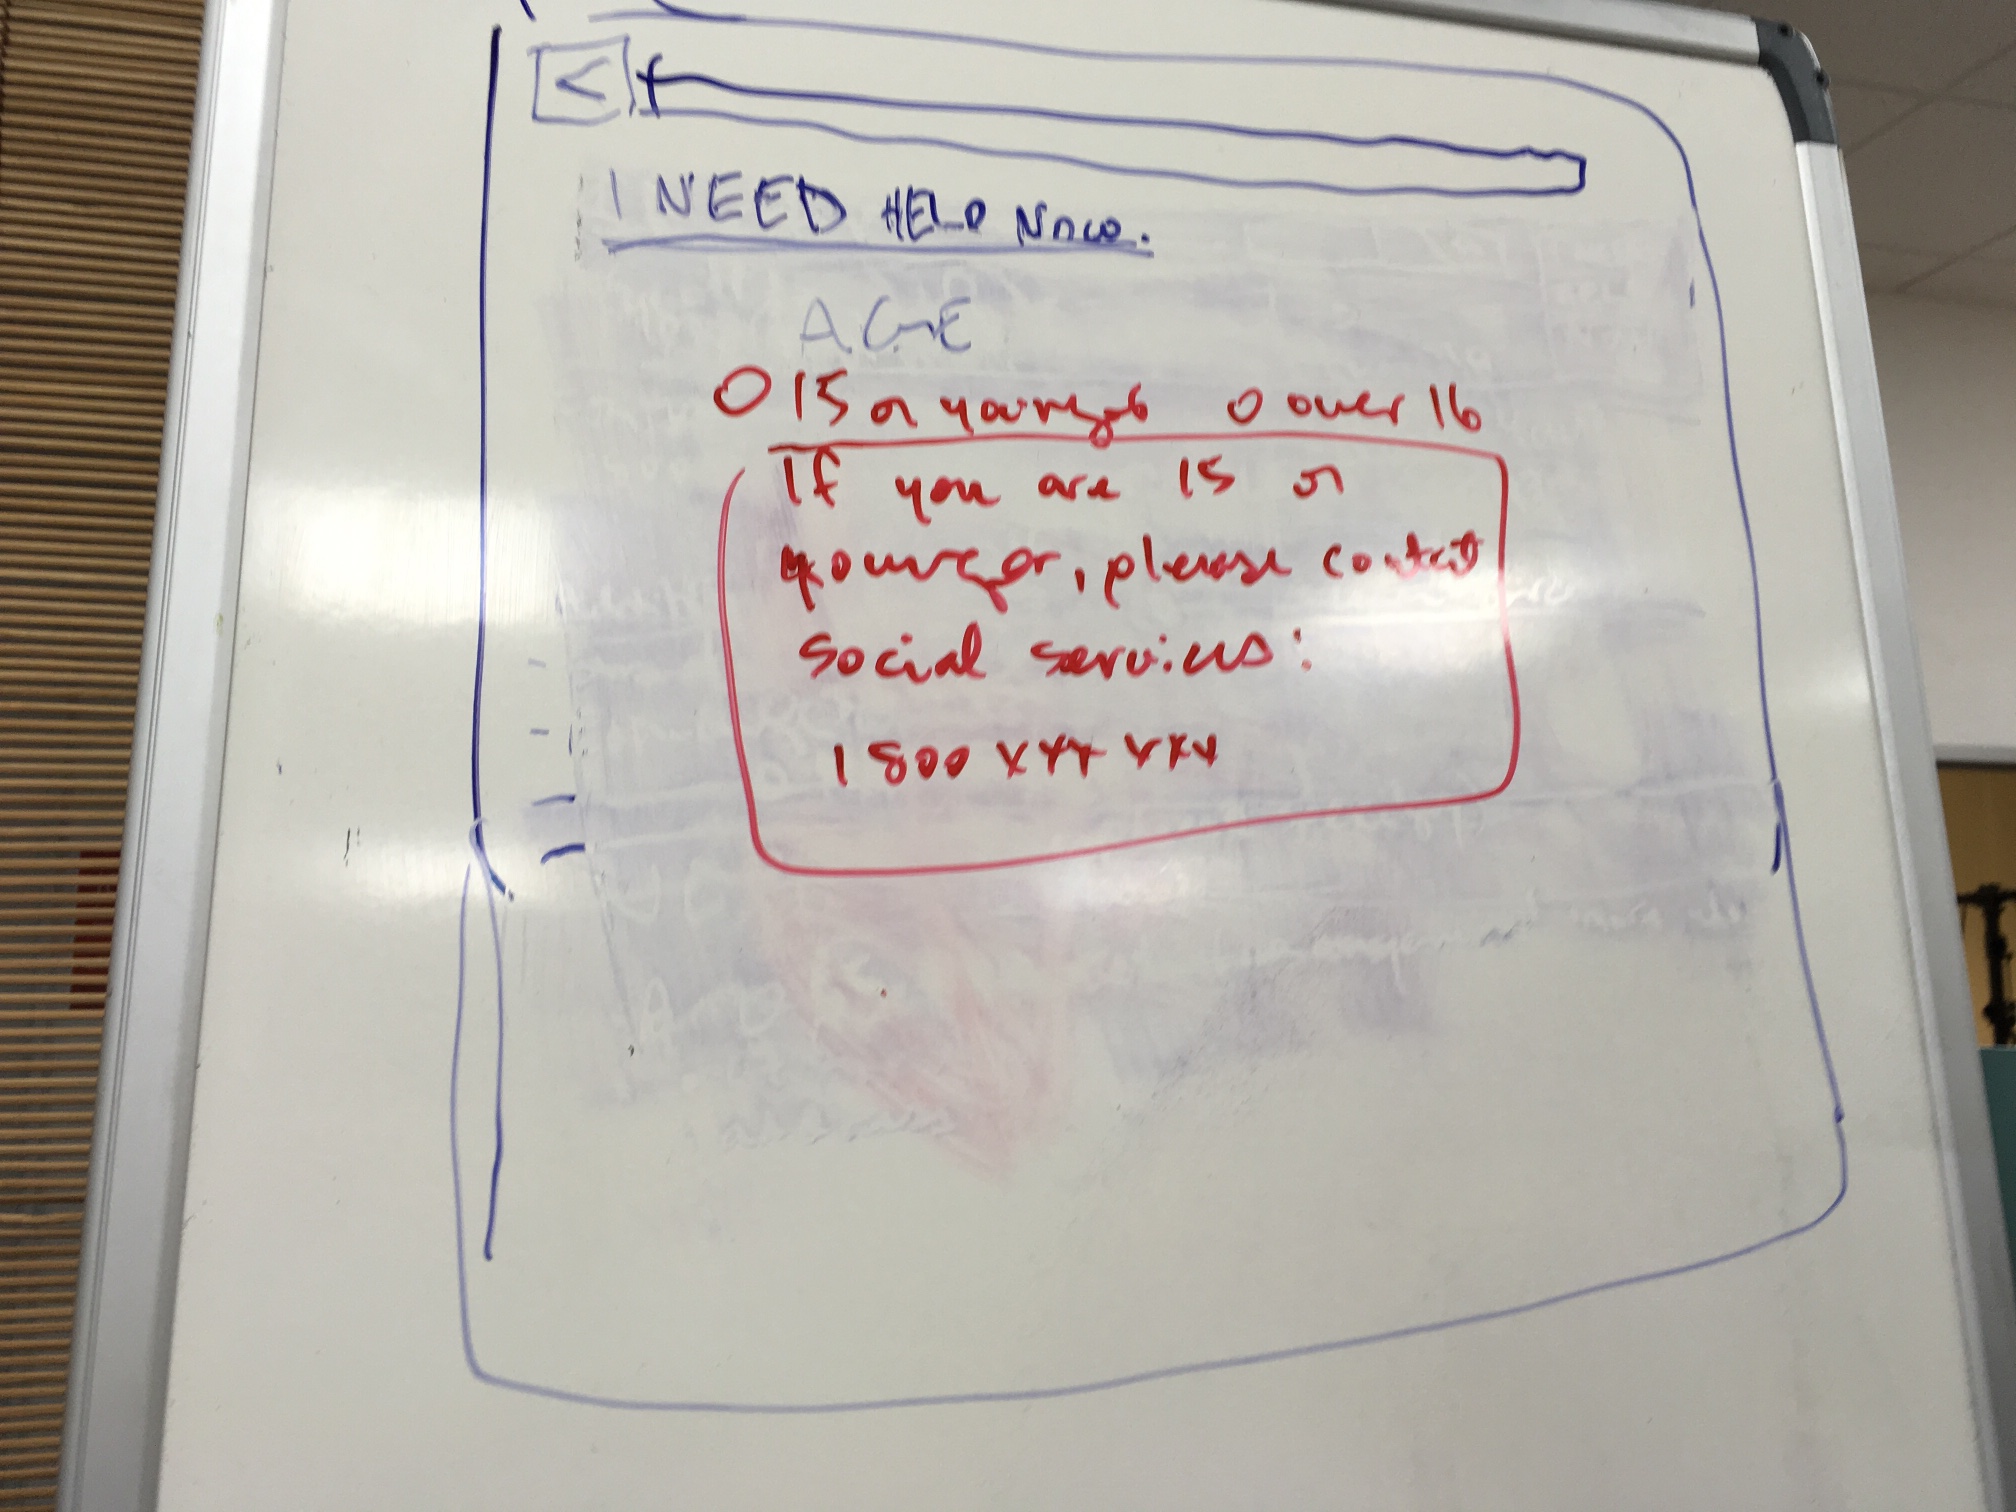 <
I NEED HELP NOW.
AGE
O 15 or younger O over 16
If you are 15 or
younger, please contact
social services:
1800 xxx xxx